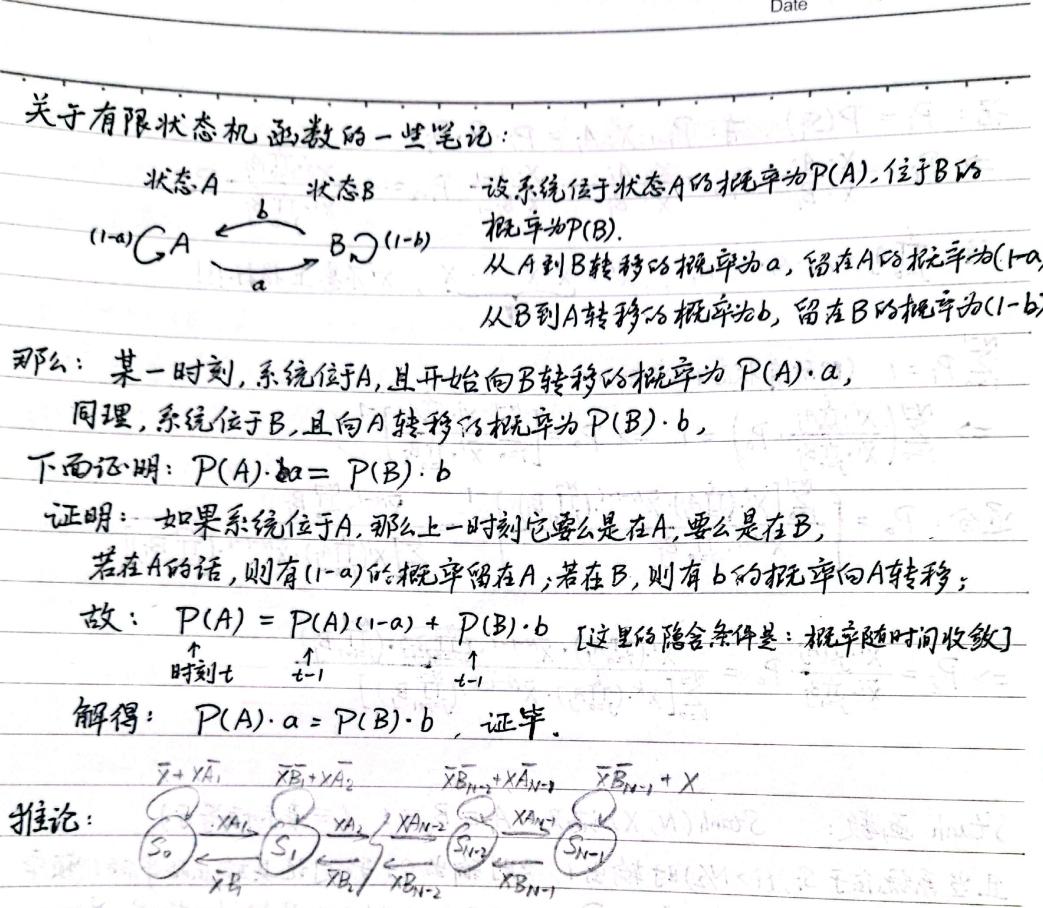 Date
关于有限状态机函数的一些笔记:
状态A 状态B
b
(1-a) A B (1-b)
a
设系统位于状态A的概率为P(A),位于B的
概率为P(B).
从A到B转移的概率为a,留在A的概率为(1-a)
从B到A转移的概率为b,留在B的概率为(1-b)
那么:某一时刻,系统位于A,且开始向B转移的概率为 P(A)·a,
同理,系统位于B,且向A转移的概率为P(B)·b,
下面证明: P(A)·a = P(B)·b
证明:如果系统位于A,那么上一时刻它要么是在A,要么是在B,
若在A的话,则有(1-a)的概率留在A;若在B,则有b的概率向A转移;
故: P(A) = P(A)(1-a) + P(B)·b [这里的隐含条件是:概率随时间收敛]
↑ ↑ ↑
时刻t t-1 t-1
解得: P(A)·a = P(B)·b,证毕.
X̅+XA̅₁ X̅B̅₁+XA̅₂ X̅B̅N-2+XA̅N-1 X̅B̅N-1+X
推论: XA₁ XA₂ XAN-2 XAN-1
S₀ S₁ SN-2 SN-1
X̅B₁ X̅B₂ X̅BN-2 X̅BN-1